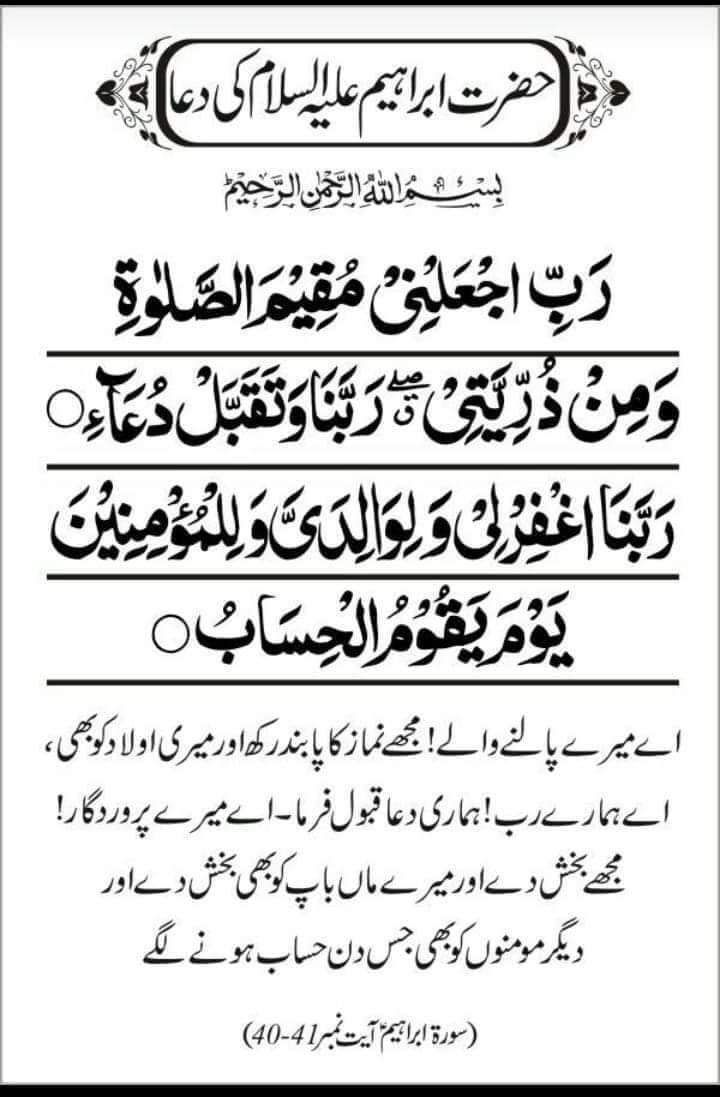 حضرت ابراہیم علیہ السلام کی دعا
بِسْمِ اللهِ الرَّحْمٰنِ الرَّحِيْمِ
رَبِّ اجْعَلْنِیْ مُقِیْمَ الصَّلٰوةِ
وَمِنْ ذُرِّیَّتِیْ ۖق رَبَّنَا وَتَقَبَّلْ دُعَآءِ ○
رَبَّنَا اغْفِرْلِیْ وَلِوَالِدَیَّ وَلِلْمُؤْمِنِیْنَ
یَوْمَ یَقُوْمُ الْحِسَابُ ○
اے میرے پالنے والے! مجھے نماز کا پابند رکھ اور میری اولاد کو بھی،
اے ہمارے رب! ہماری دعا قبول فرما۔ اے میرے پروردگار!
مجھے بخش دے اور میرے ماں باپ کو بھی بخش دے اور
دیگر مومنوں کو بھی جس دن حساب ہونے لگے
(سورۃ ابراہیمؑ آیت نمبر 41-40)